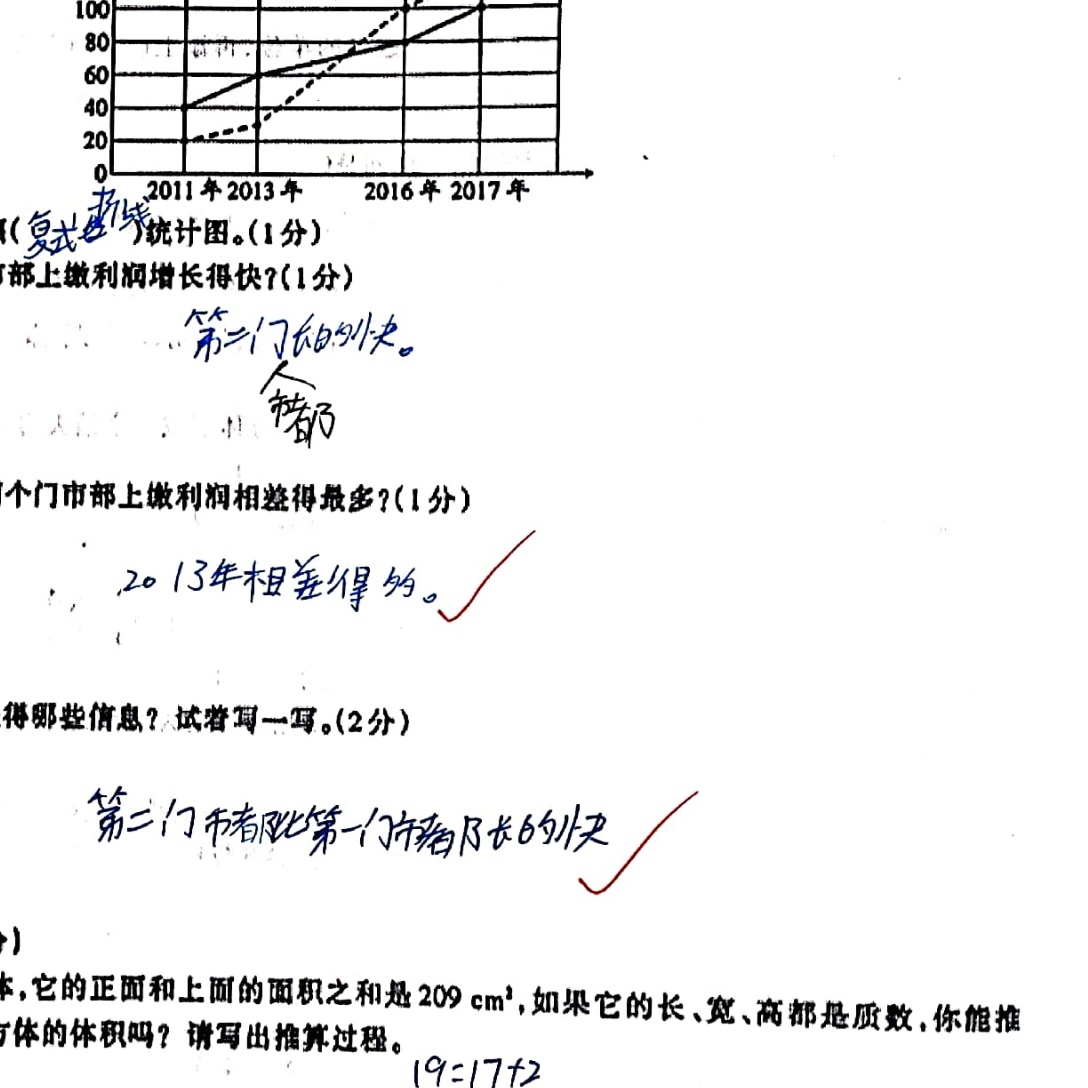 100
80
60
40
20
0
2011年 2013年 2016年 2017年
(复式折线)统计图。(1分)
部上缴利润增长得快?(1分)
第二门长的快。
市部
个门市部上缴利润相差得最多?(1分)
2013年相差得多。
得哪些信息? 试着写一写。(2分)
第二门市部比第一门市部长的快
)
体,它的正面和上面的面积之和是209 cm²,如果它的长、宽、高都是质数,你能推
方体的体积吗? 请写出推算过程。
19=17+2